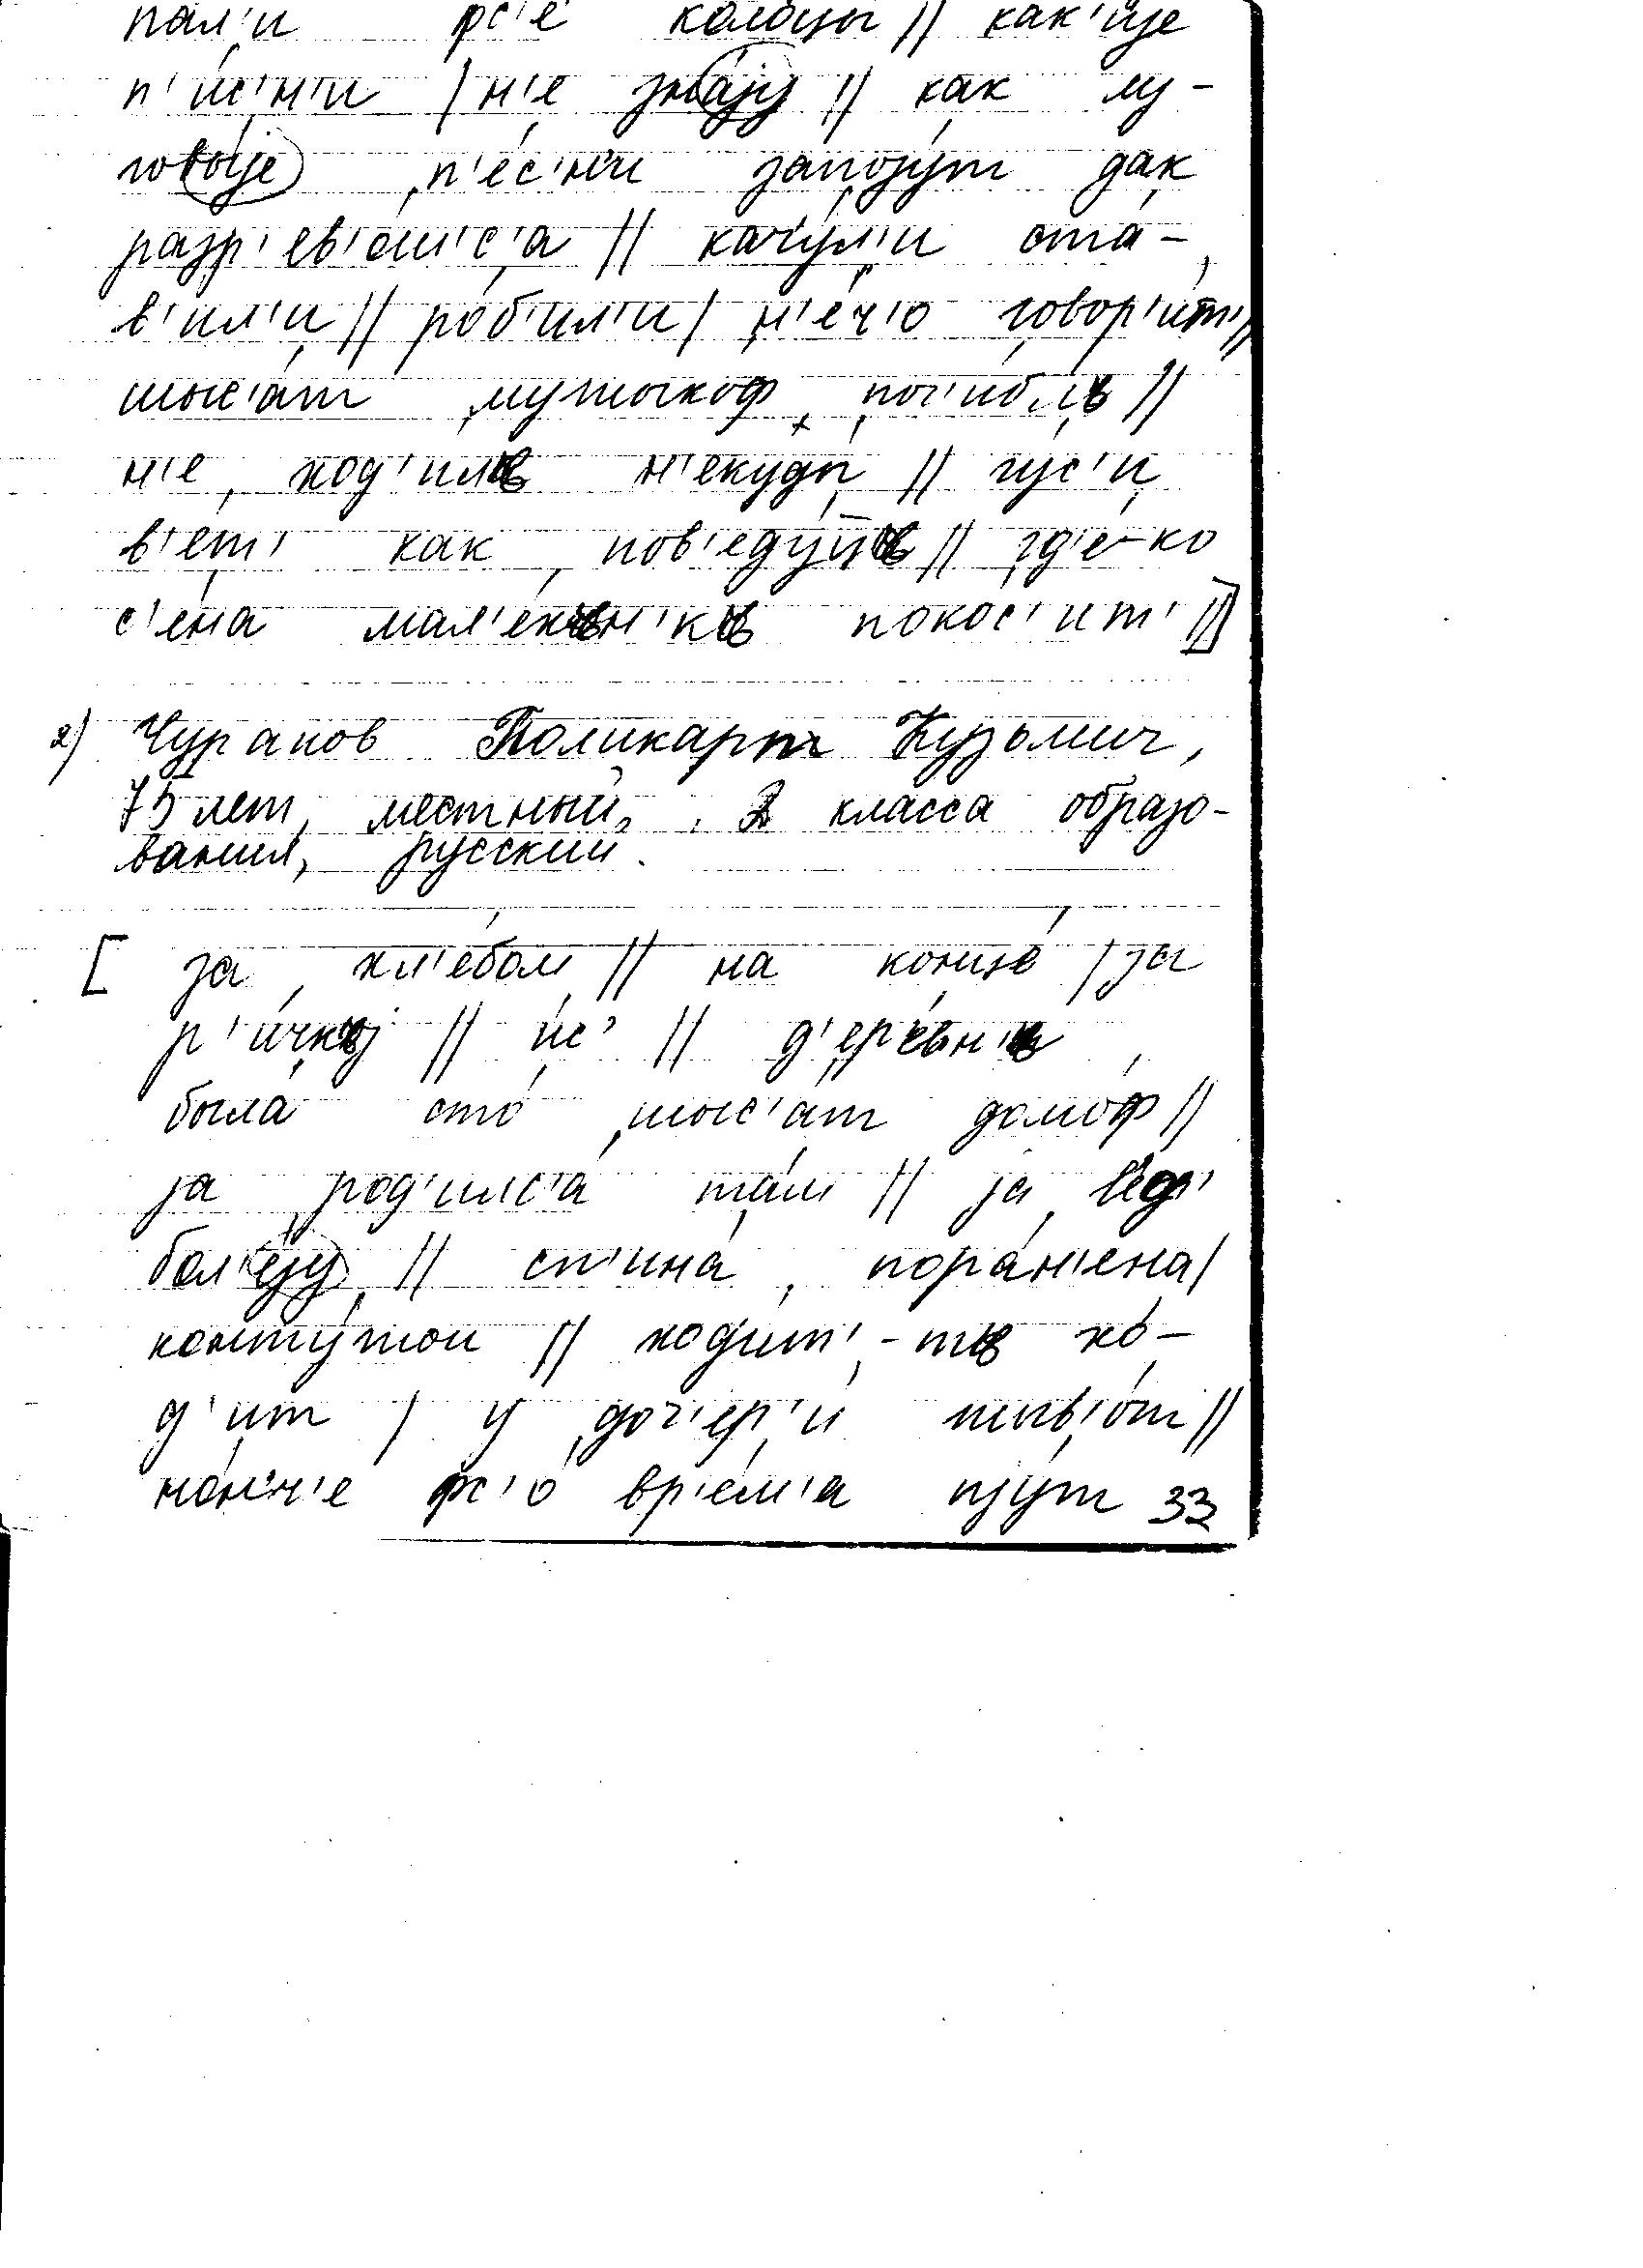 пал'и фс'е колоцы // как'ије
п'ис'н'и / н'е знају // как лу-
говыје п'ес'н'и запојут дак
разр'ев'ош'с'а // кач'ул'и ста-
в'ил'и // роб'ил'и / н'еч'о говор'ит' //
тыс'ат мужыкоф пог'иблъ //
н'е ход'илъ н'екуды // гус'и
в'ет' как пов'едуццъ // гд'е-ко
с'ена мал'ен'къ покос'ит' //]
2) Чурапов Поликарп Кузьмич,
75 лет, местный, 2 класса образо-
вания, русский.
[ за хл'ебом // на конце / за
р'ичкъј // ис' // д'ер'евн'ъ
была сто тыс'ат домоф //
ја род'илс'а там // ја вед'
бол'еју // сп'ина поран'ена /
контужон // ход'ит'-тъ хо-
д'ит / у доч'ер'и жыв'от //
нон'н'е фс'о вр'ем'а пјут 33